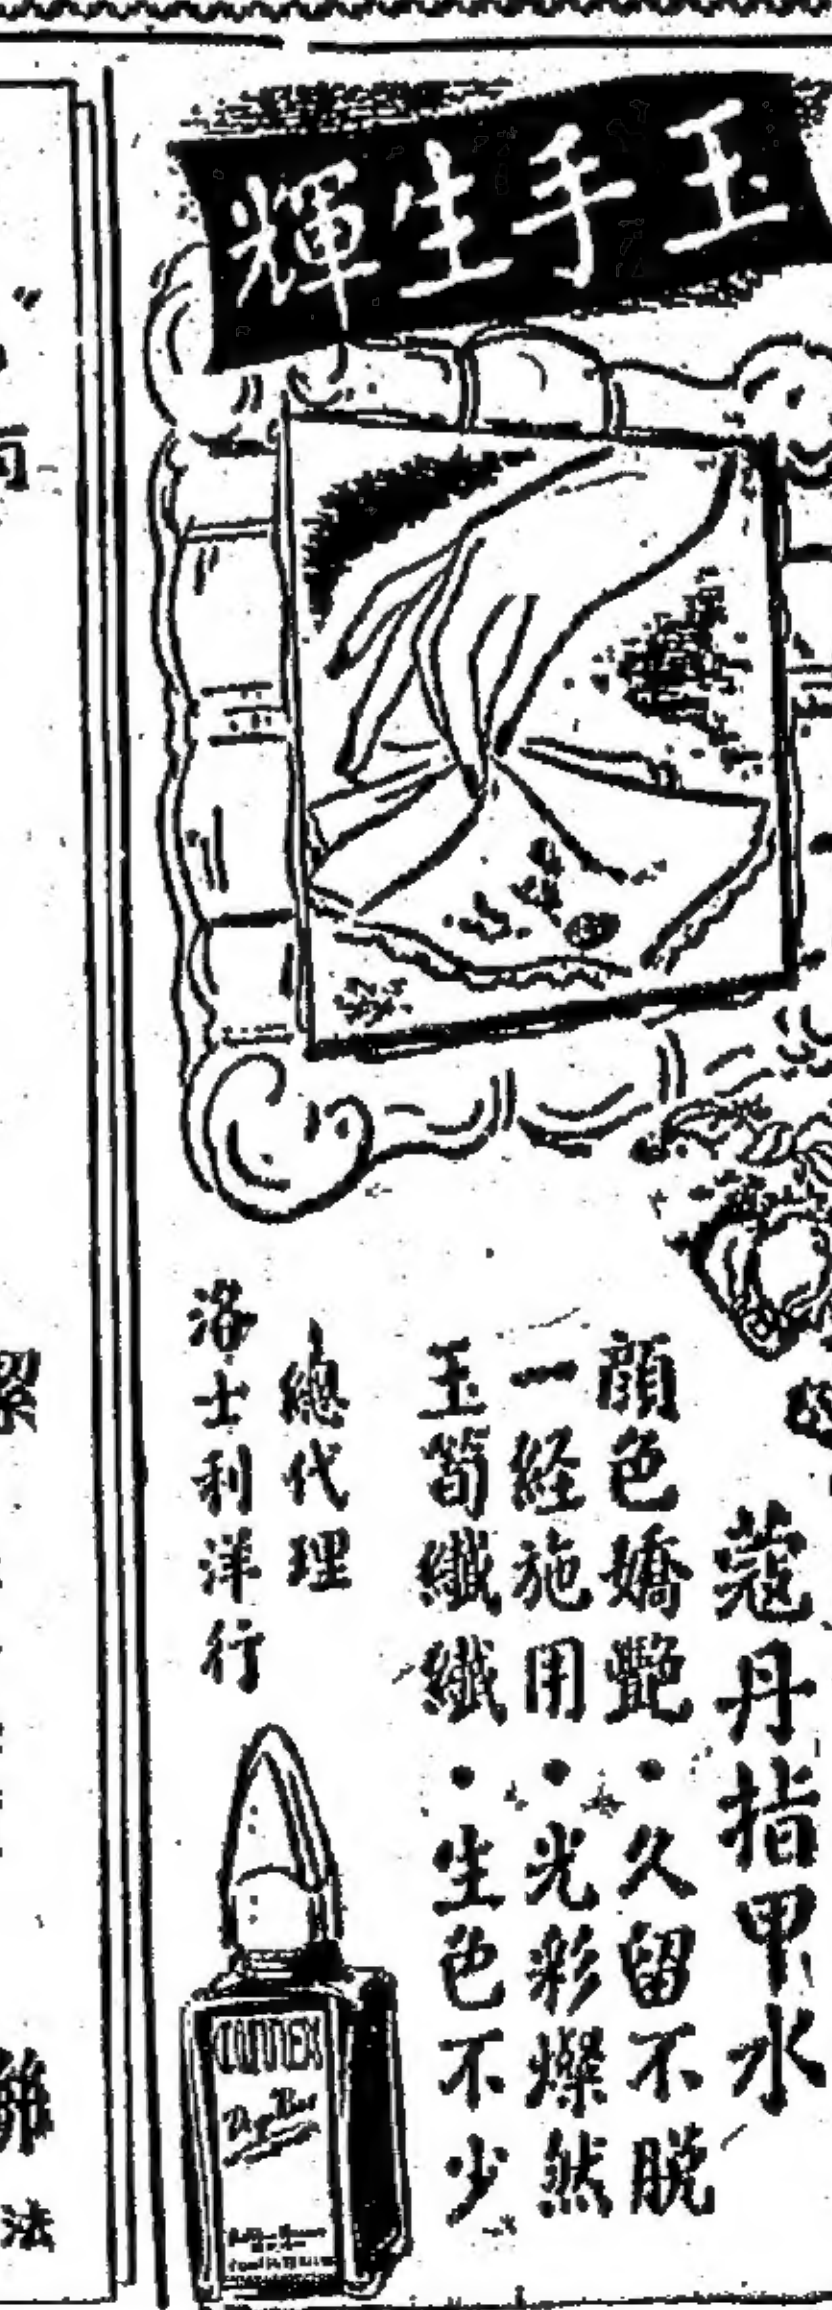 玉手生輝
蔻丹指甲水
顔色嬌艷•久留不脱
一経施用•光彩燦然
玉筍纖纖•生色不少
總代理
洛士利洋行
CUTEX